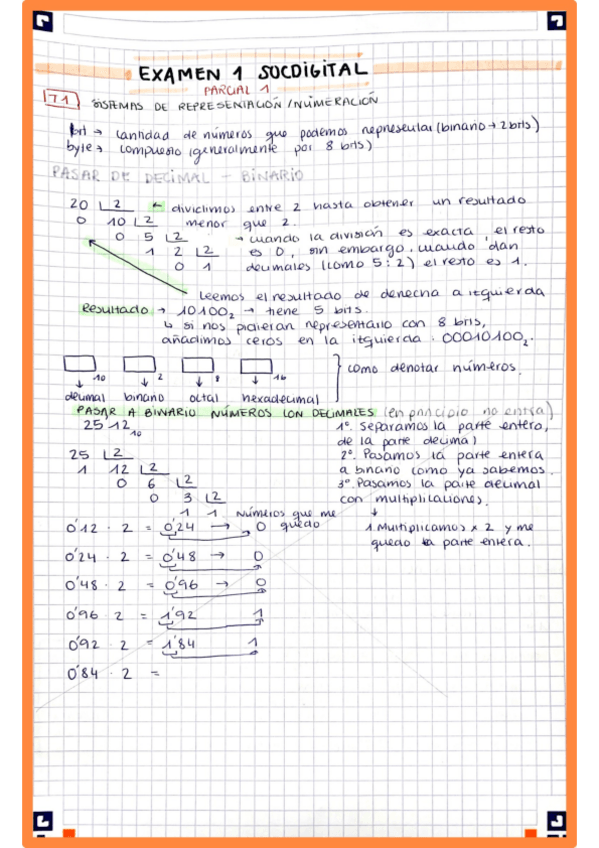 EXAMEN 1 SOCDIGITAL
PARCIAL 1
T1 SISTEMAS DE REPRESENTACIÓN / NUMERACIÓN
bit → cantidad de números que podemos representar (binario → 2 bits)
byte → compuesto (generalmente por 8 bits)
PASAR DE DECIMAL - BINARIO
20 2 ← dividimos entre 2 hasta obtener un resultado
0 10 2 menor que 2.
0 5 2 → cuando la división es exacta, el resto
1 2 2 es 0, sin embargo, cuando dan
0 1 decimales (como 5:2) el resto es 1.
leemos el resultado de derecha a izquierda
Resultado → 10100₂ → tiene 5 bits.
↳ si nos pidieran representarlo con 8 bits,
añadimos ceros en la izquierda. 00010100₂.
10 2 8 16 como denotar números.
decimal binario octal hexadecimal
PASAR A BINARIO NÚMEROS CON DECIMALES (en principio no entra)
25'12₁₀ 1º. Separamos la parte entero,
de la parte decimal
25 2 2º. Pasamos la parte entera
1 12 2 a binario como ya sabemos.
0 6 2 3º. Pasamos la parte decimal
0 3 2 con multiplicaciones.
1 1 Números que me ↓
0'12 · 2 = 0'24 → 0 quedo 1. Multiplicamos x 2 y me
quedo la parte entera.
0'24 · 2 = 0'48 → 0
0'48 · 2 = 0'96 → 0
0'96 · 2 = 1'92 1
0'92 · 2 = 1'84 1
0'84 · 2 =